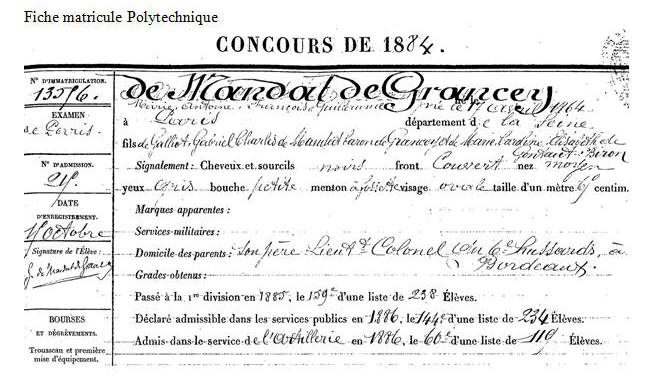 Fiche matricule Polytechnique
CONCOURS DE 1884.
N° D'IMMATRICULATION.
13596.
EXAMEN
de Paris.
N° D'ADMISSION.
215.
DATE
D'ENREGISTREMENT.
octobre
Signature de l'Élève :
G. de Mandat de Grancey
BOURSES
ET DÉGRÈVEMENTS.
Trousseau et première
mise d'équipement.
de Mandat de Grancey
Marie Antoine François Guillaume né le 17 avril 1864
à Paris département de la Seine
fils de Galliot Gabriel Charles de Mandat baron de Grancey et de Marie Caroline Elisabeth de
Gontaut-Biron
Signalement : Cheveux et sourcils noirs front Couvert nez moyen
yeux gris bouche petite menton à fossette visage ovale taille d'un mètre centim.
Marques apparentes :
Services militaires :
Domicile des parents : Son père Lieut-t Colonel au 6e hussards, à
Bordeaux.
Grades obtenus :
Passé à la 1re division en 1885, le 159e d'une liste de 238 Élèves.
Déclaré admissible dans les services publics en 1886, le 144e d'une liste de 234 Élèves.
Admis dans le service de l'Artillerie en 1886, le 60e d'une liste de 119 Élèves.